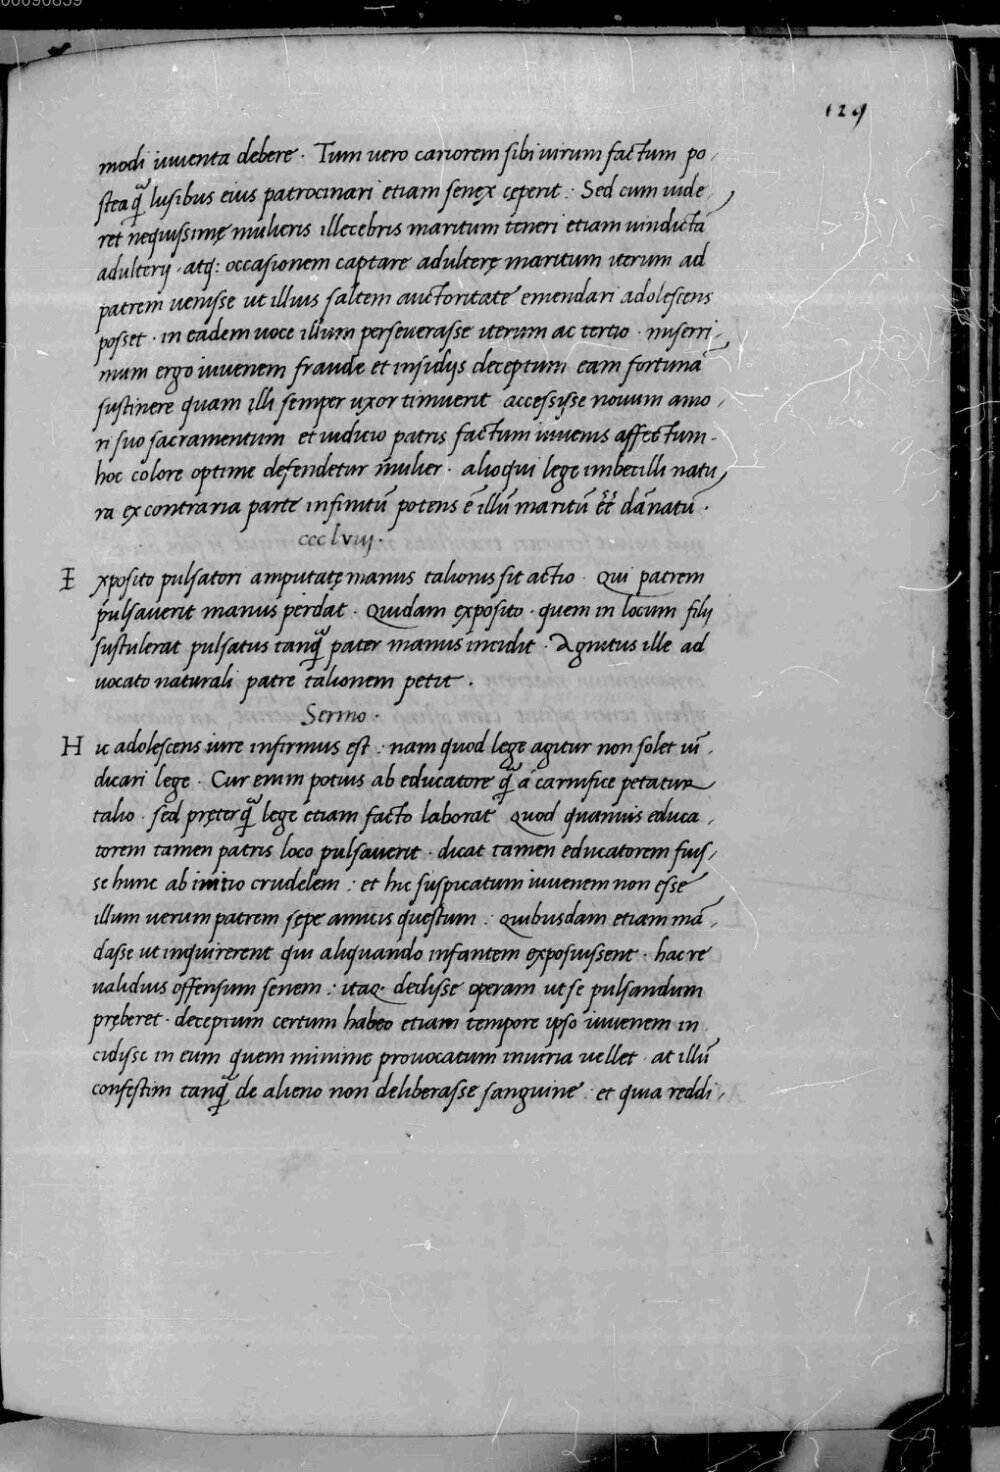 00090859
129
modi iuuenta debere · Tum uero cariorem sibi uirum factum po
stea q̃ lusibus eius patrocinari etiam senex cęperit : Sed cum uide
ret nequissimę mulieris illecebris maritum teneri etiam uindicta
adulterij · atq: occasionem captare adulterę maritum iterum ad
patrem uenisse ut illius saltem auctoritate emendari adolescens
posset · in eadem uoce illum perseuerasse iterum ac tertio · miserri
mum ergo iuuenem fraude et insidijs deceptum eam fortunã
sustinere quam illi semper uxor timuerit accessisse nouum amo
ri suo sacramentum et iudicio patris factum iuuenis affectum ·
hoc colore optime defendetur mulier · alioqui lege imbecilli natu
ra ex contraria parte infinitũ potens ẽ illũ maritũ dãnatũ ·
ccclviij ·
Exposito pulsatori amputatę manus talionis sit actio · Qui patrem
pulsauerit manus perdat · Quidam exposito · quem in locum filij
sustulerat pulsatus tanq̃ pater manus incidit · Agnitus ille ad
uocato naturali patre talionem petit ·
Sermo ·
Hic adolescens iure infirmus est : nam quod lege agitur non solet uĩ
dicari lege · Cur enim potius ab educatore q̃ a carnifice petatur
talio · sed pręterq̃ lege etiam facto laborat Quod quamuis educa
torem tamen patris loco pulsauerit · dicat tamen educatorem fuis
se hunc ab initio crudelem : et hic suspicatum iuuenem non esse
illum uerum patrem sępe amicis questum : Quibusdam etiam mã
dasse ut inquirerent qui aliquando infantem exposuissent · hac re
ualidius offensum senem : itaq· dedisse operam ut se pulsandum
pręberet · deceptum certum habeo etiam tempore ipso iuuenem in
cidisse in eum quem minime prouocatum iniuria uellet · at illũ
confestim tanq̃ de alieno non deliberasse sanguine : et quia reddi